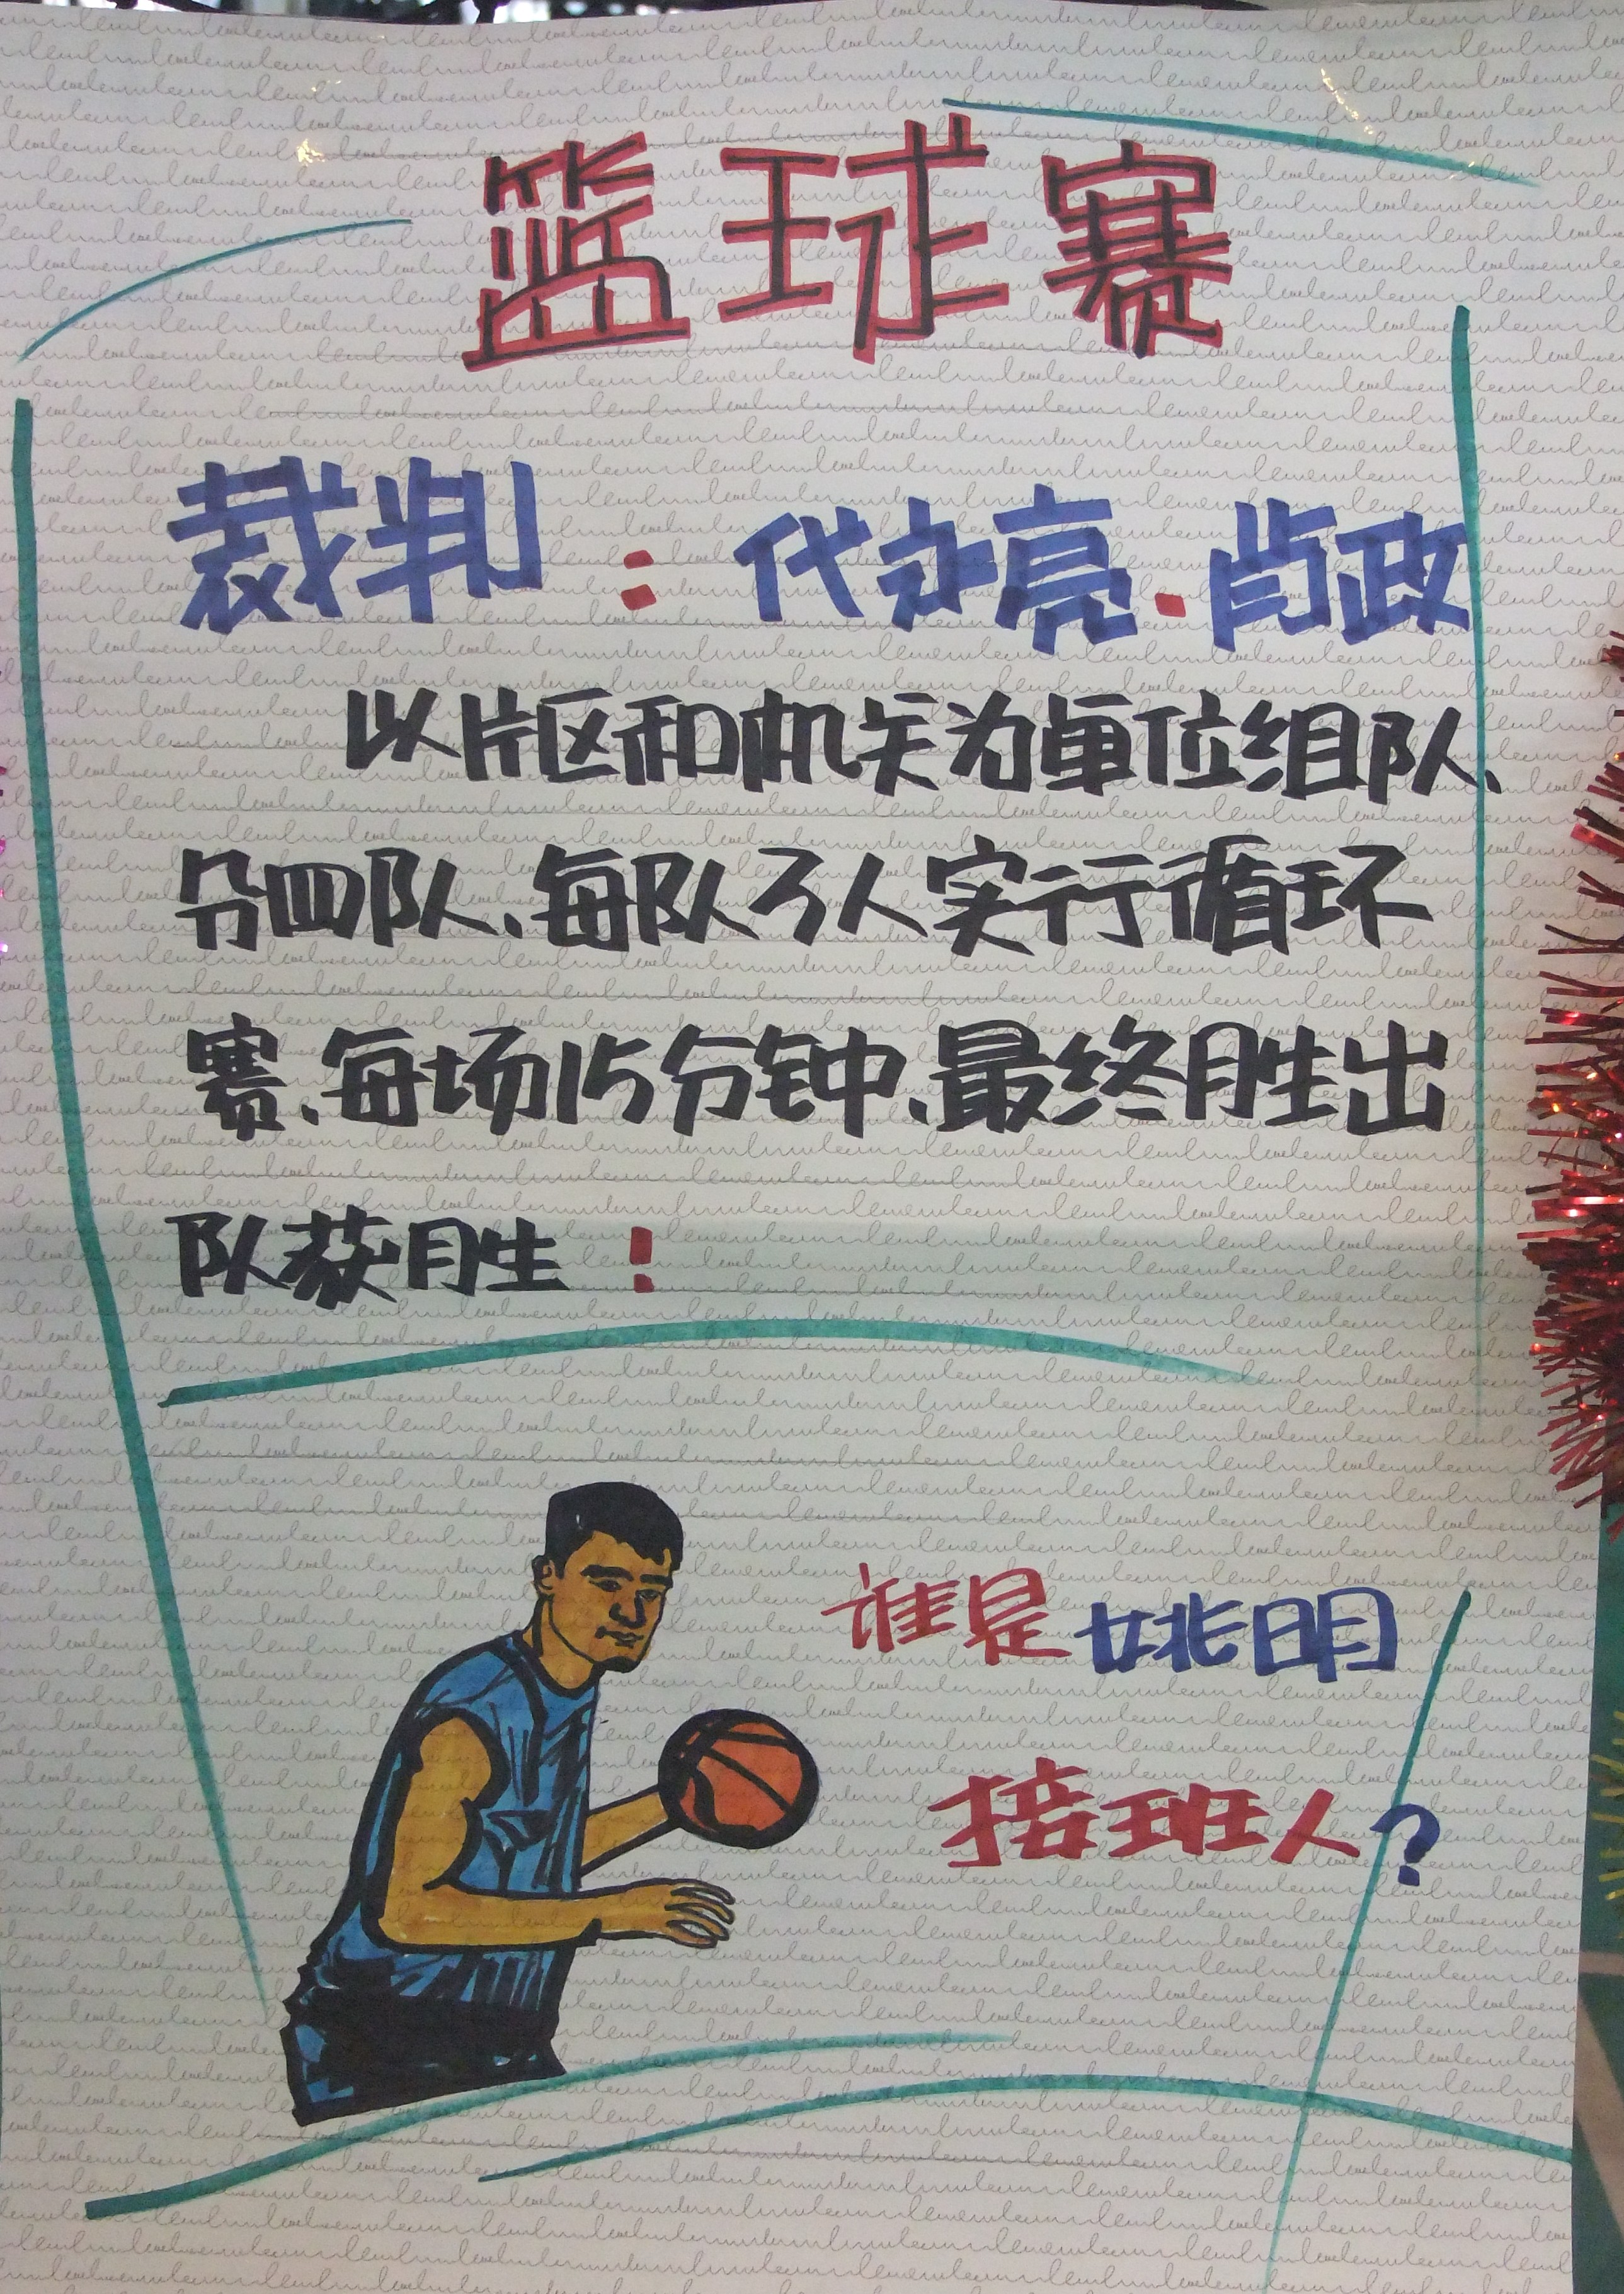 篮球赛
裁判：代永亮.肖政
以片区和机关为单位组队、
分四队、每队3人实行循环
赛、每场15分钟、最终胜出
队获胜！
谁是姚明
接班人？